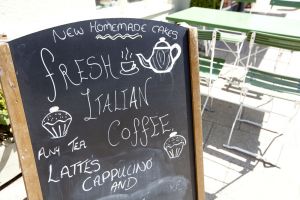 NEW HOMEMADE CAKES
FRESH
ITALIAN
COFFEE
ANY TEA
LATTES
CAPPUCINO
AND